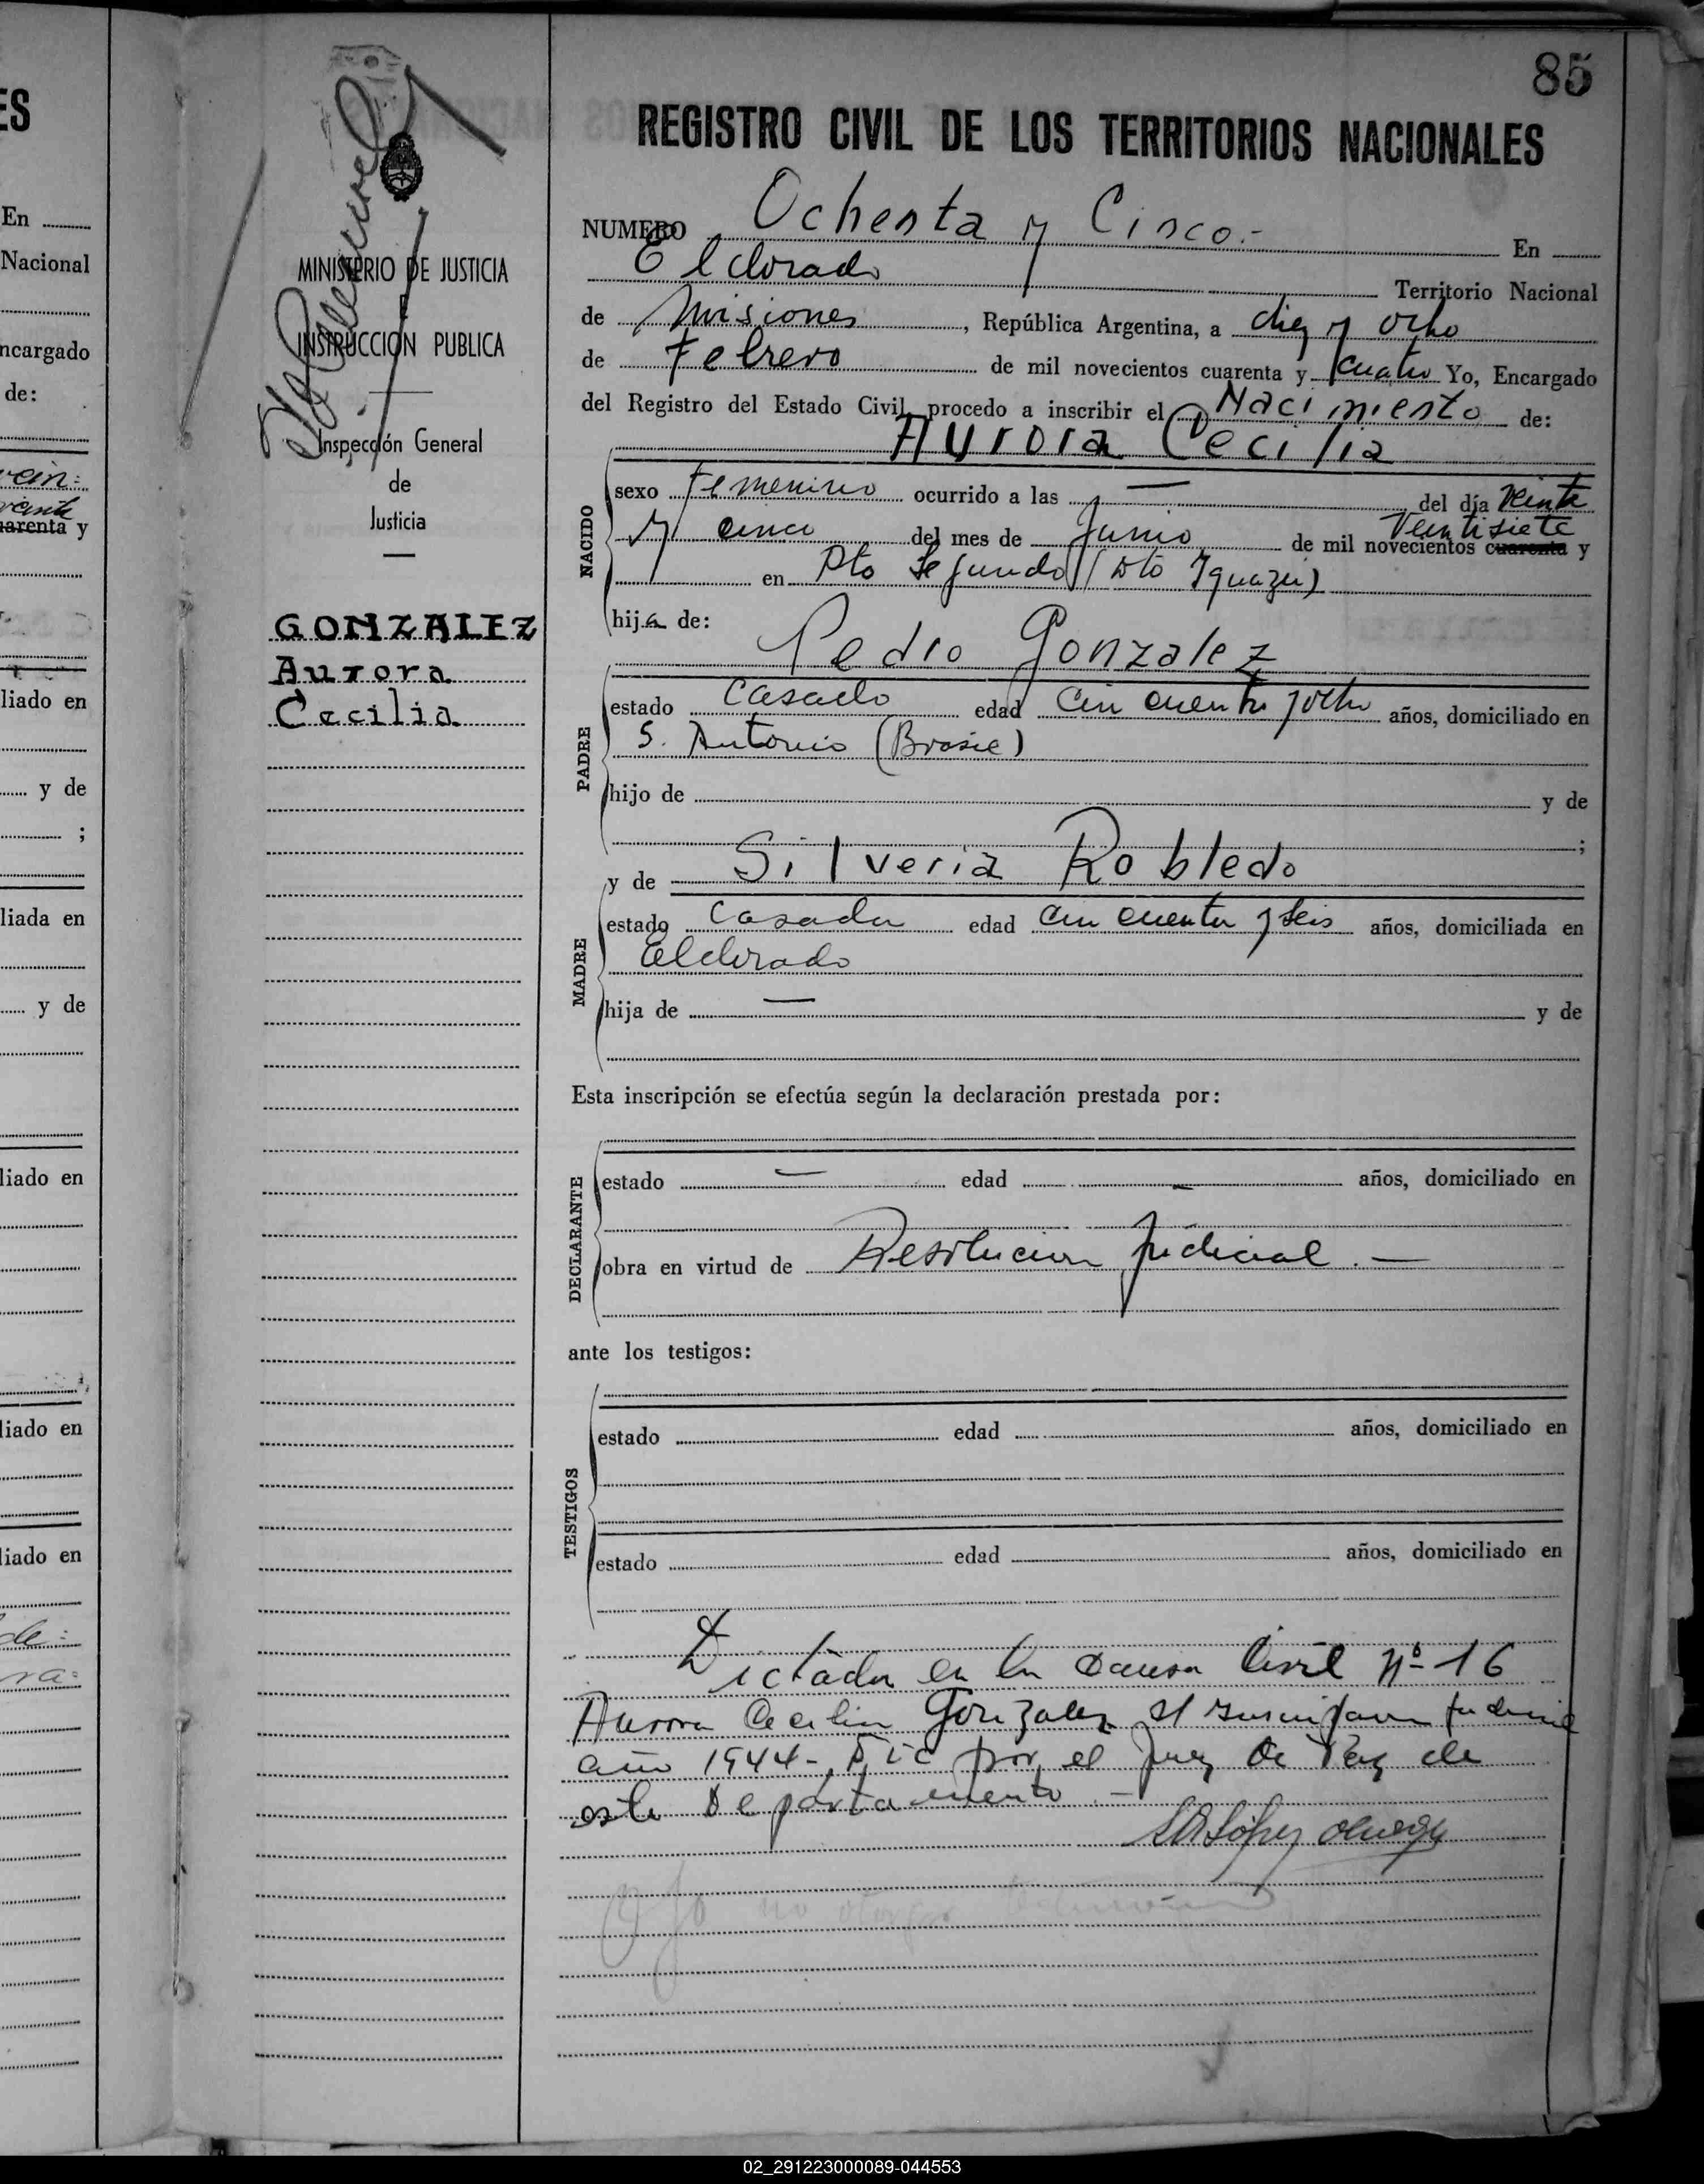 85
REGISTRO CIVIL DE LOS TERRITORIOS NACIONALES
NUMERO Ochenta y Cinco.- En
Eldorado Territorio Nacional
de Misiones, República Argentina, a diez y ocho
de Febrero de mil novecientos cuarenta y cuatro Yo, Encargado
del Registro del Estado Civil, procedo a inscribir el Nacimiento de:
Aurora Cecilia
NACIDO
sexo Femenino ocurrido a las — del día Veinte
y cinco del mes de Junio de mil novecientos cuarenta y
Veintisiete
en Pto Segundo (Dto Iguazú)
hija de:
Pedro Gonzalez
PADRE
estado Casado edad Cincuenta y ocho años, domiciliado en
S. Antonio (Brasil)
hijo de y de
;
y de Silveria Robledo
MADRE
estado Casada edad Cincuenta y seis años, domiciliada en
Eldorado
hija de — y de
Esta inscripción se efectúa según la declaración prestada por:
DECLARANTE
estado — edad — años, domiciliado en
obra en virtud de Resolucion judicial.—
ante los testigos:
TESTIGOS
estado edad años, domiciliado en
estado edad años, domiciliado en
Dictada en la Causa Civil Nº 16
Aurora Cecilia Gonzalez
año 1944- por el Juez de Paz de
este Departamento.-
MINISTERIO DE JUSTICIA
E
INSTRUCCION PUBLICA
Inspección General
de
Justicia
GONZALEZ
Aurora
Cecilia
ES
En
Nacional
ncargado
de:
vein:
arenta y
liado en
y de
;
liada en
y de
liado en
liado en
liado en
de:
ra:
02_291223000089-044553